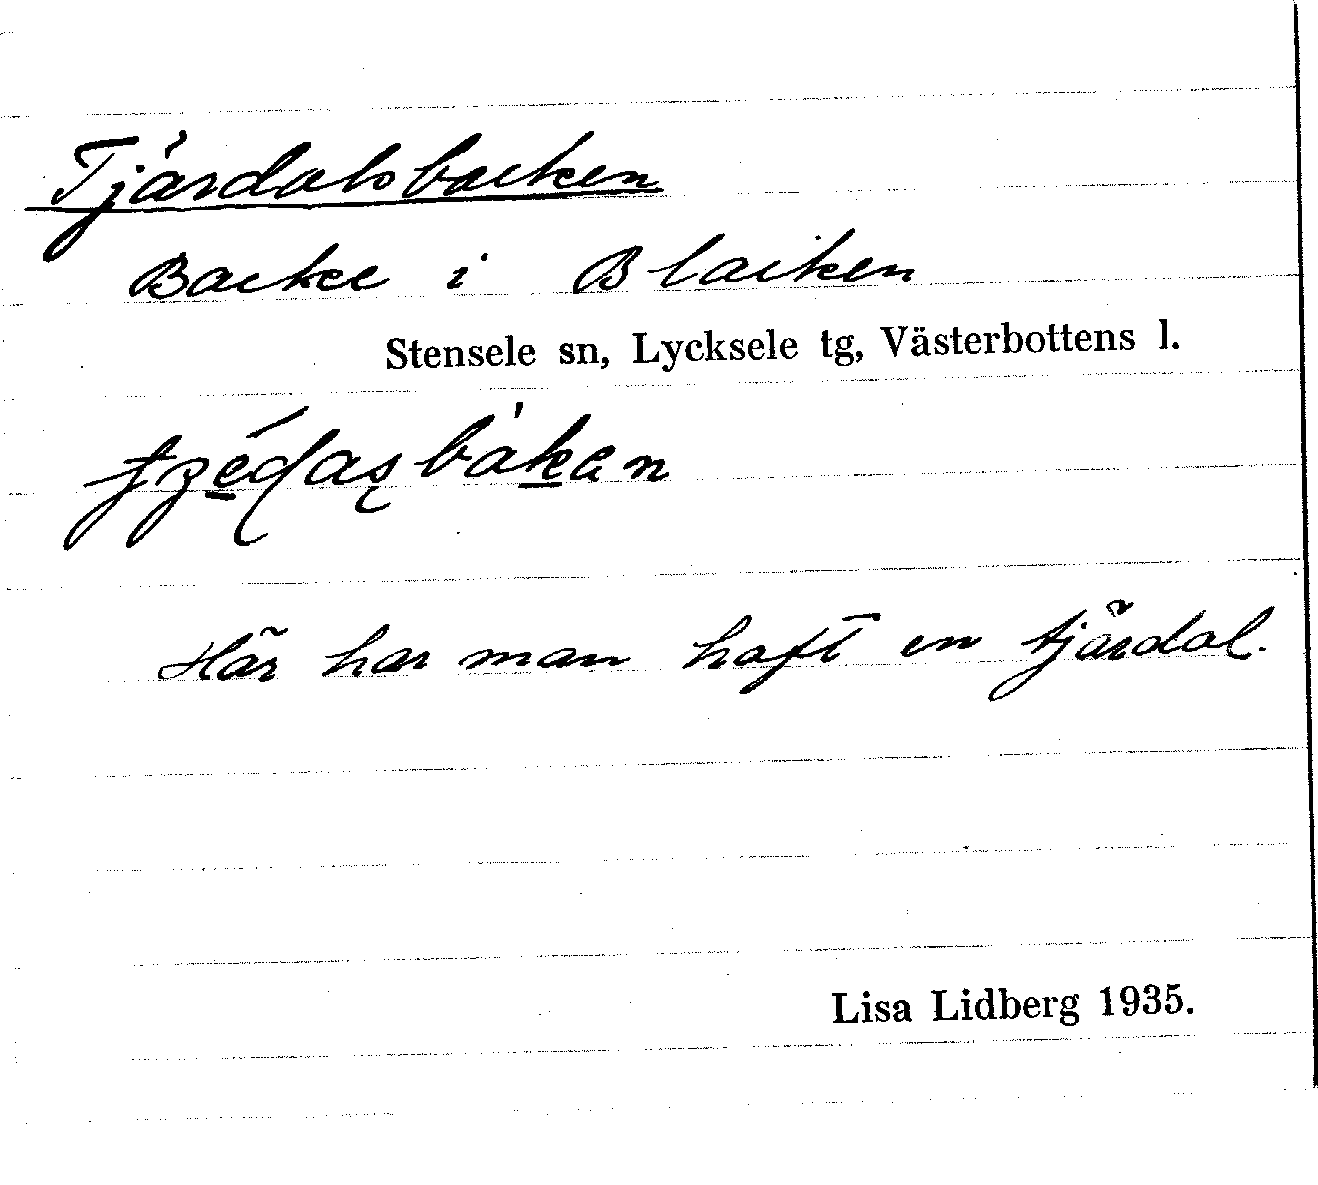 Tjärdalsbacken
Backe i Blaiken
Stensele sn, Lycksele tg, Västerbottens l.
Här har man haft en tjärdal.
Lisa Lidberg 1935.